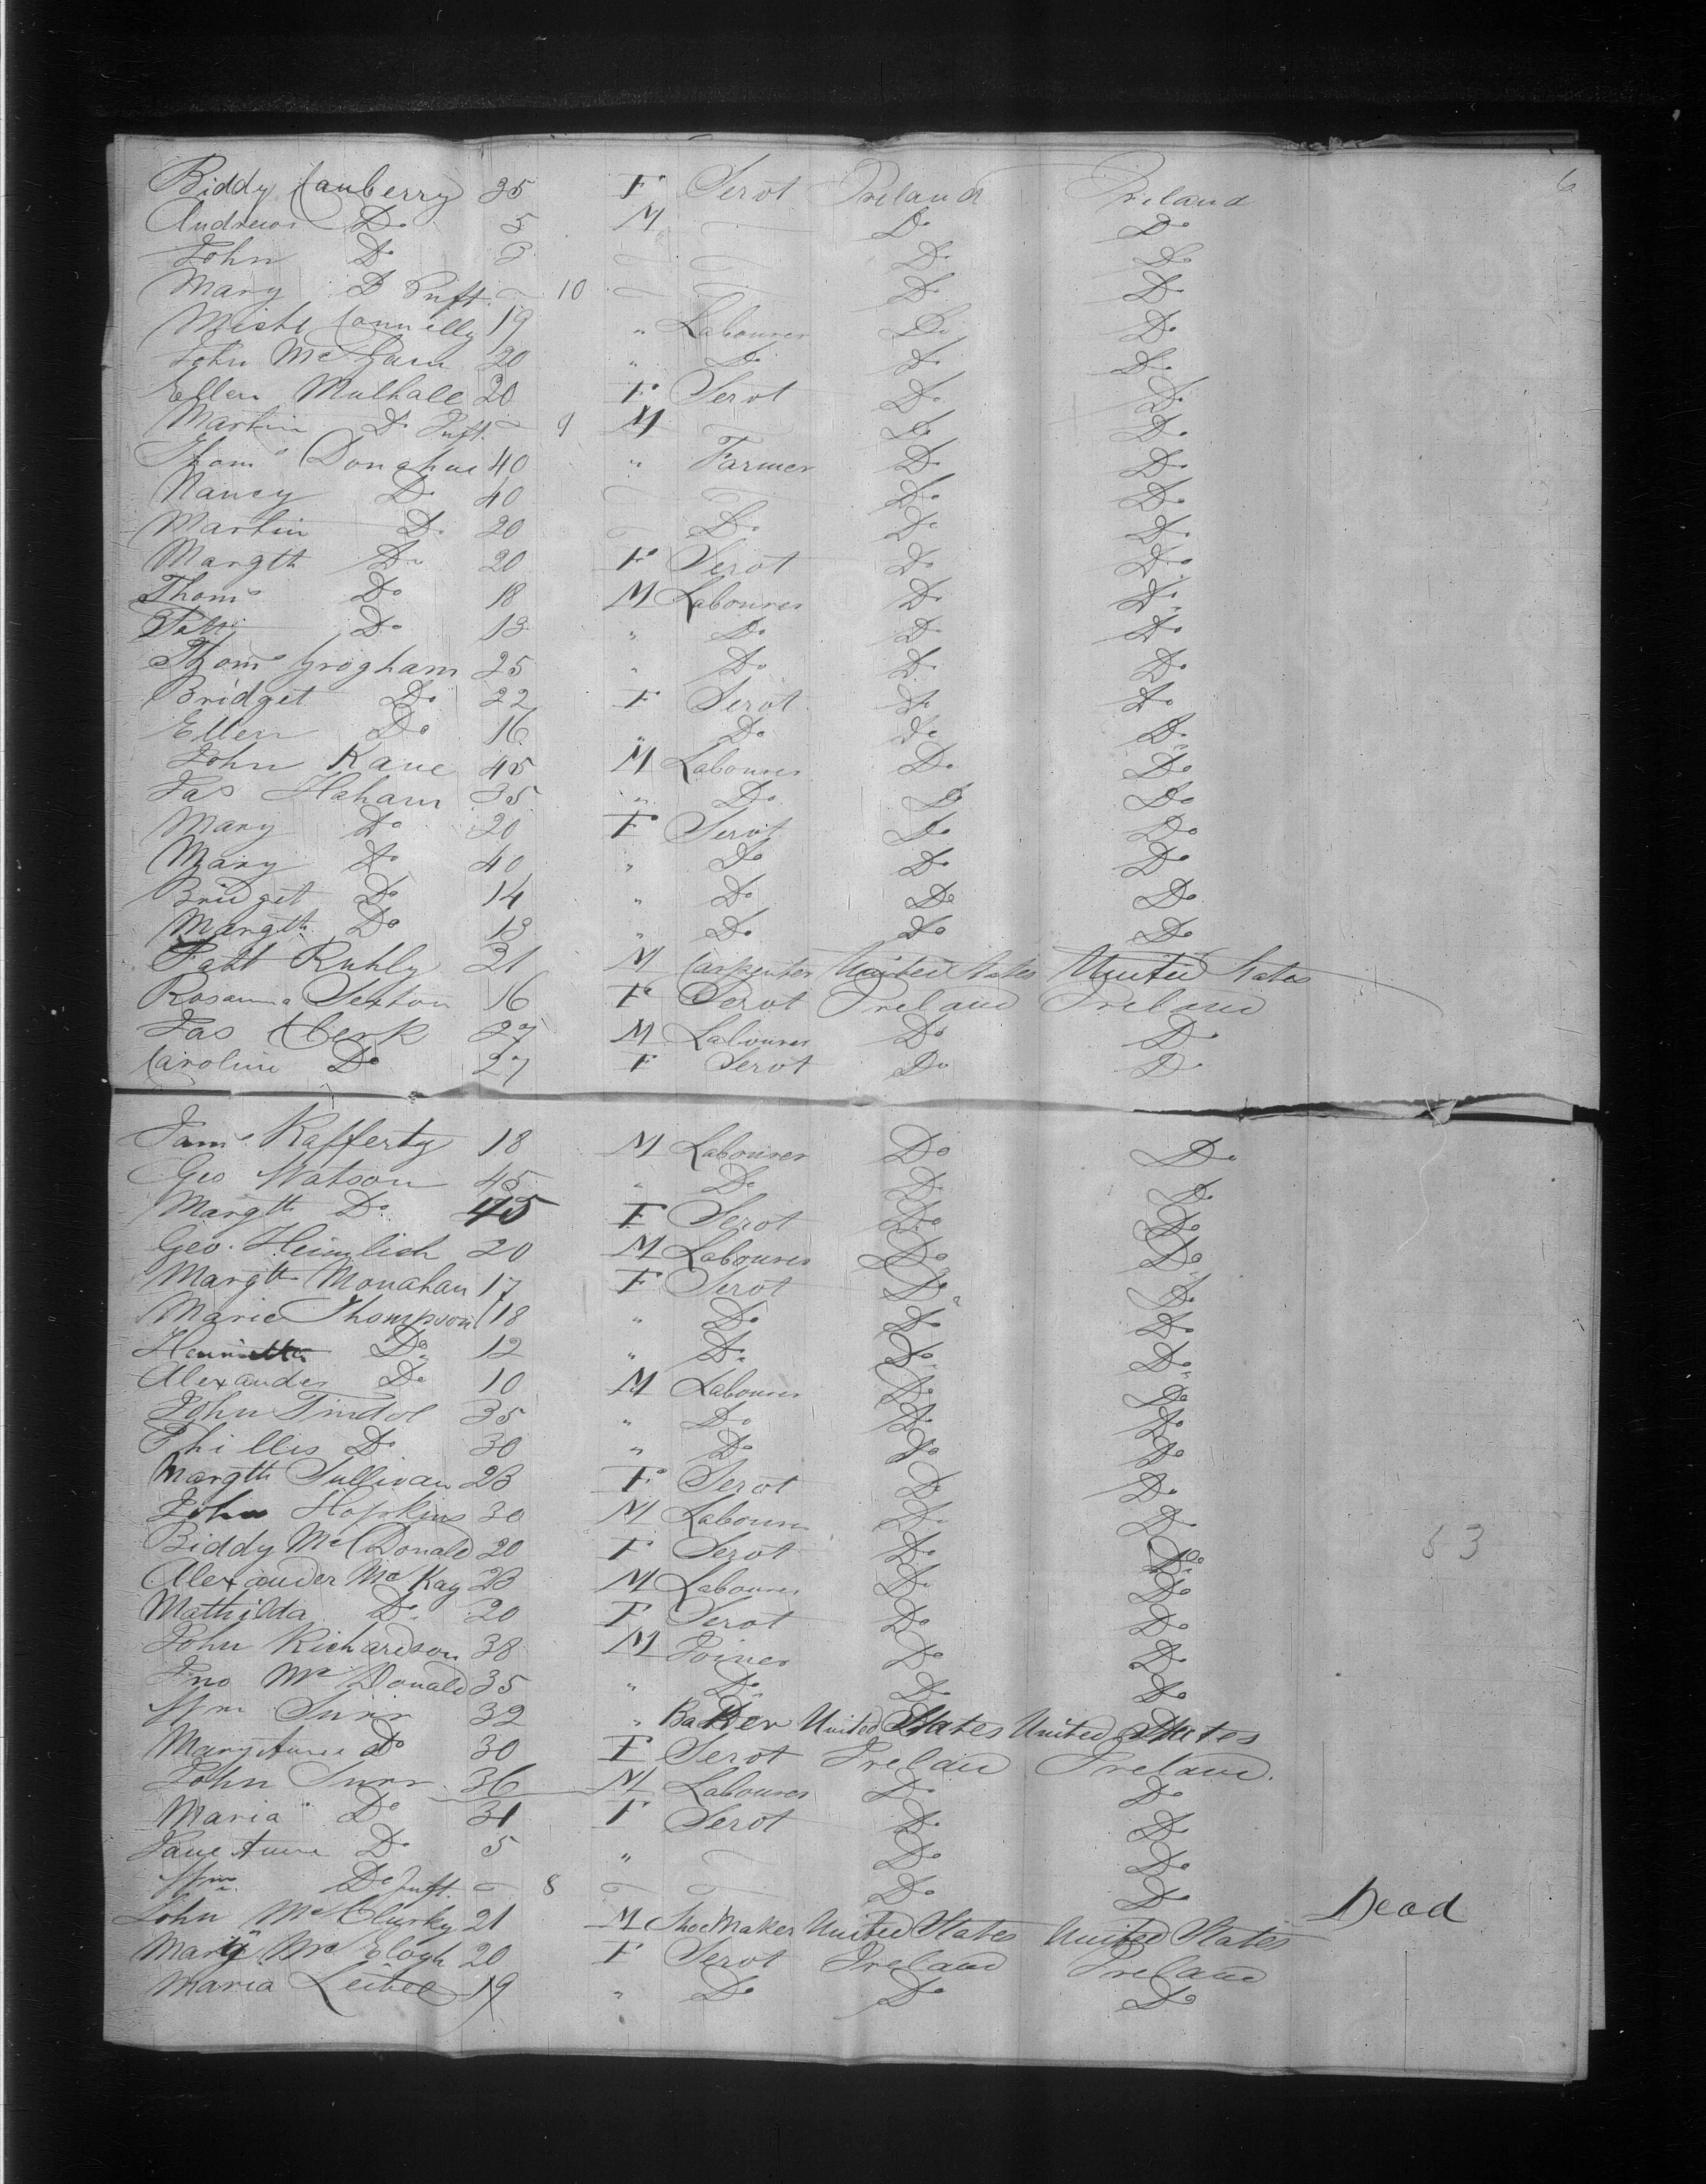 6
Biddy Canberry 35 F Servt Ireland Ireland
Andrew Do 5 M Do Do
John Do 3 Do Do
Mary Do Inft 10 Do Do
Michl Connelly 19 " Labourer Do Do
John Mc 20 " Do Do Do
Ellen Mulhall 20 F Servt Do Do
Martin Do Inft 9 M Do Do
Thoms Donahue 40 " Farmer Do Do
Nancy Do 40 Do Do
Martin Do 20 Do Do Do
Margtt Do 20 F Servt Do Do
Thoms Do 18 M Labourer Do Do
Patt Do 13 " Do Do Do
Thoms Grogham 25 " Do Do Do
Bridget Do 22 F Servt Do Do
Ellen Do 16 " Do Do Do
John Kane 45 M Labourer Do Do
Jas Haham 35 " Do Do Do
Mary Do 20 F Servt Do Do
Mary Do 40 " Do Do Do
Bridget Do 14 " Do Do Do
Margtt Do 13 " Do Do Do
Patt Ruhly 21 M Carpenter United States United States
Rosanna Sexton 16 F Servt Ireland Ireland
Jas Clerk 27 M Labourer Do Do
Caroline Do 27 F Servt Do Do
Jams Rafferty 18 M Labourer Do Do
Geo Watson 45 " Do Do Do
Margtt Do 45 F Servt Do Do
Geo. Heimlich 20 M Labourer Do Do
Margtt Monahan 17 F Servt Do Do
Marie Thompson 18 " Do Do Do
Henrietta Do 12 " Do Do Do
Alexander Do 10 M Labourer Do Do
John Tindol 35 " Do Do Do
Phillis Do 30 " Do Do Do
Margtt Sullivan 23 F Servt Do Do
John Hopkins 30 M Labourer Do Do
Biddy McDonald 20 F Servt Do Do
Alexander McKay 23 M Labourer Do Do
Mathilda Do 20 F Servt Do Do
John Richardson 38 M Joiner Do Do
Jno McDonald 35 " Do Do Do
Wm Surr 32 " Baker United States United States
Mary Anne Do 30 F Servt Ireland Ireland
John Surr 36 M Labourer Do Do
Maria Do 31 F Servt Do Do
Jane Anne Do 5 " Do Do
Wm Do Inft 8 Do Do Dead
John McClurky 21 M Shoe Maker United States United States
Mary Mc 20 F Servt Ireland Ireland
Maria Leibee 19 " Do Do Do